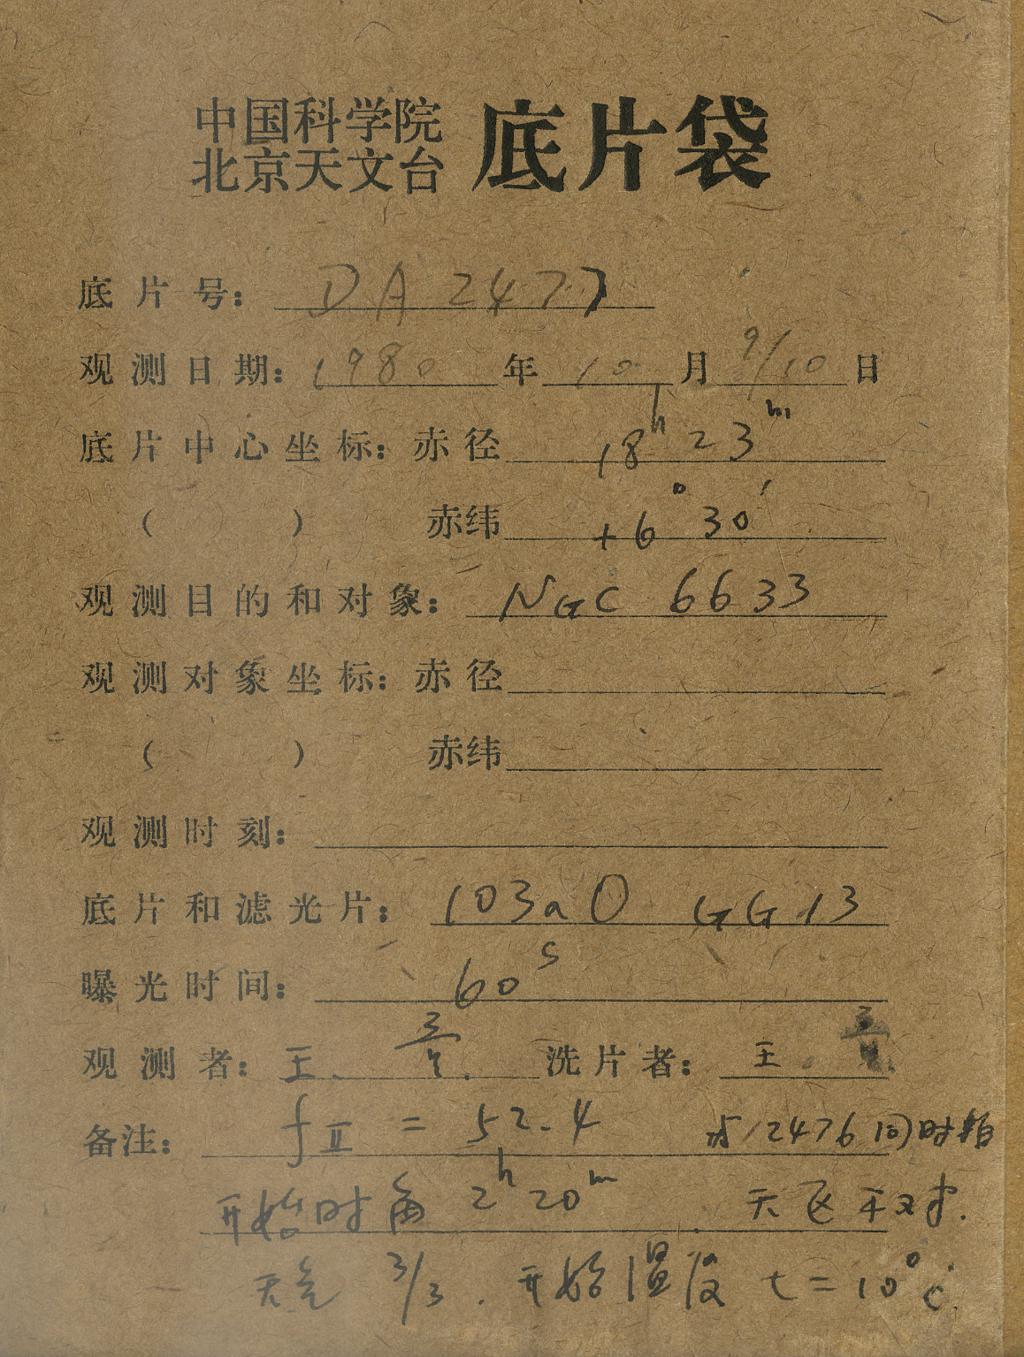 中国科学院
北京天文台 底片袋
底片号: DA 2477
观测日期: 1980 年 10 月 9/10 日
底片中心坐标: 赤径 18h 23m
( ) 赤纬 +6° 30′
观测目的和对象: NGC 6633
观测对象坐标: 赤径
( ) 赤纬
观测时刻:
底片和滤光片: 103aO GG13
曝光时间: 60s
观测者: 王 洗片者: 王
备注: fⅡ = 52.4 2476 同时拍
开始时角 2h 20m 天
天气 3/3. 开始温度 t = 10°C